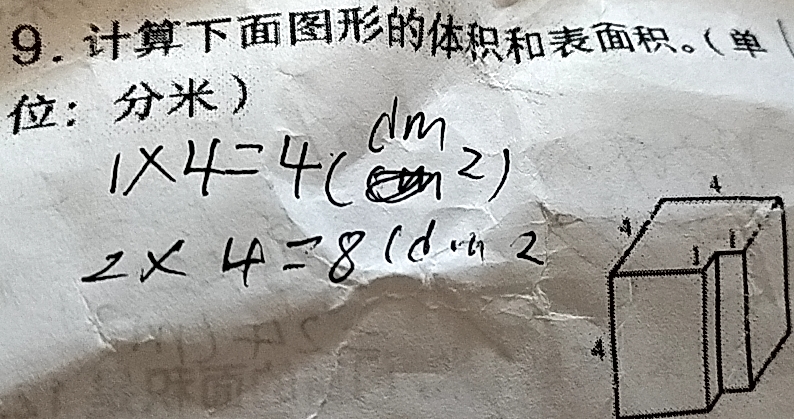 9. 计算下面图形的体积和表面积。(单
位：分米)
1×4=4(dm2)
2×4=8(dm2
4
4
1
1
4